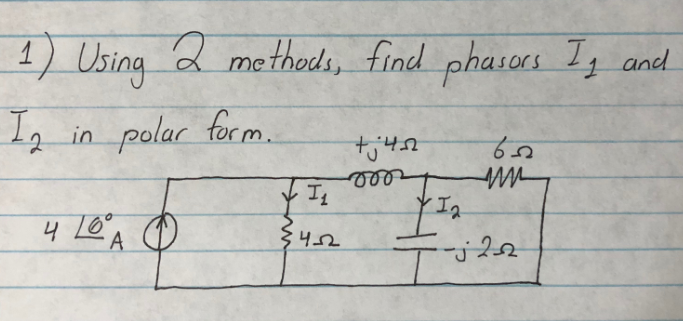 1) Using 2 methods, find phasors I₁ and
I₂ in polar form.
+j4Ω 6Ω
I₁ I₂
4 ∠0° A 4Ω -j2Ω